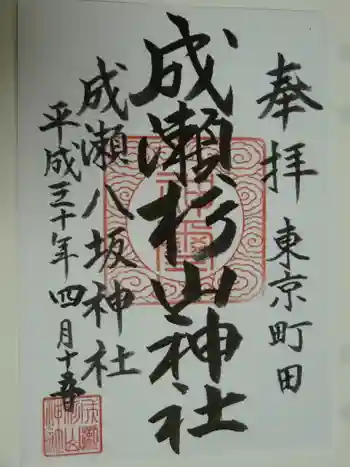 奉拝 東京町田
成瀬杉山神社
成瀬八坂神社
平成三十年四月十五日